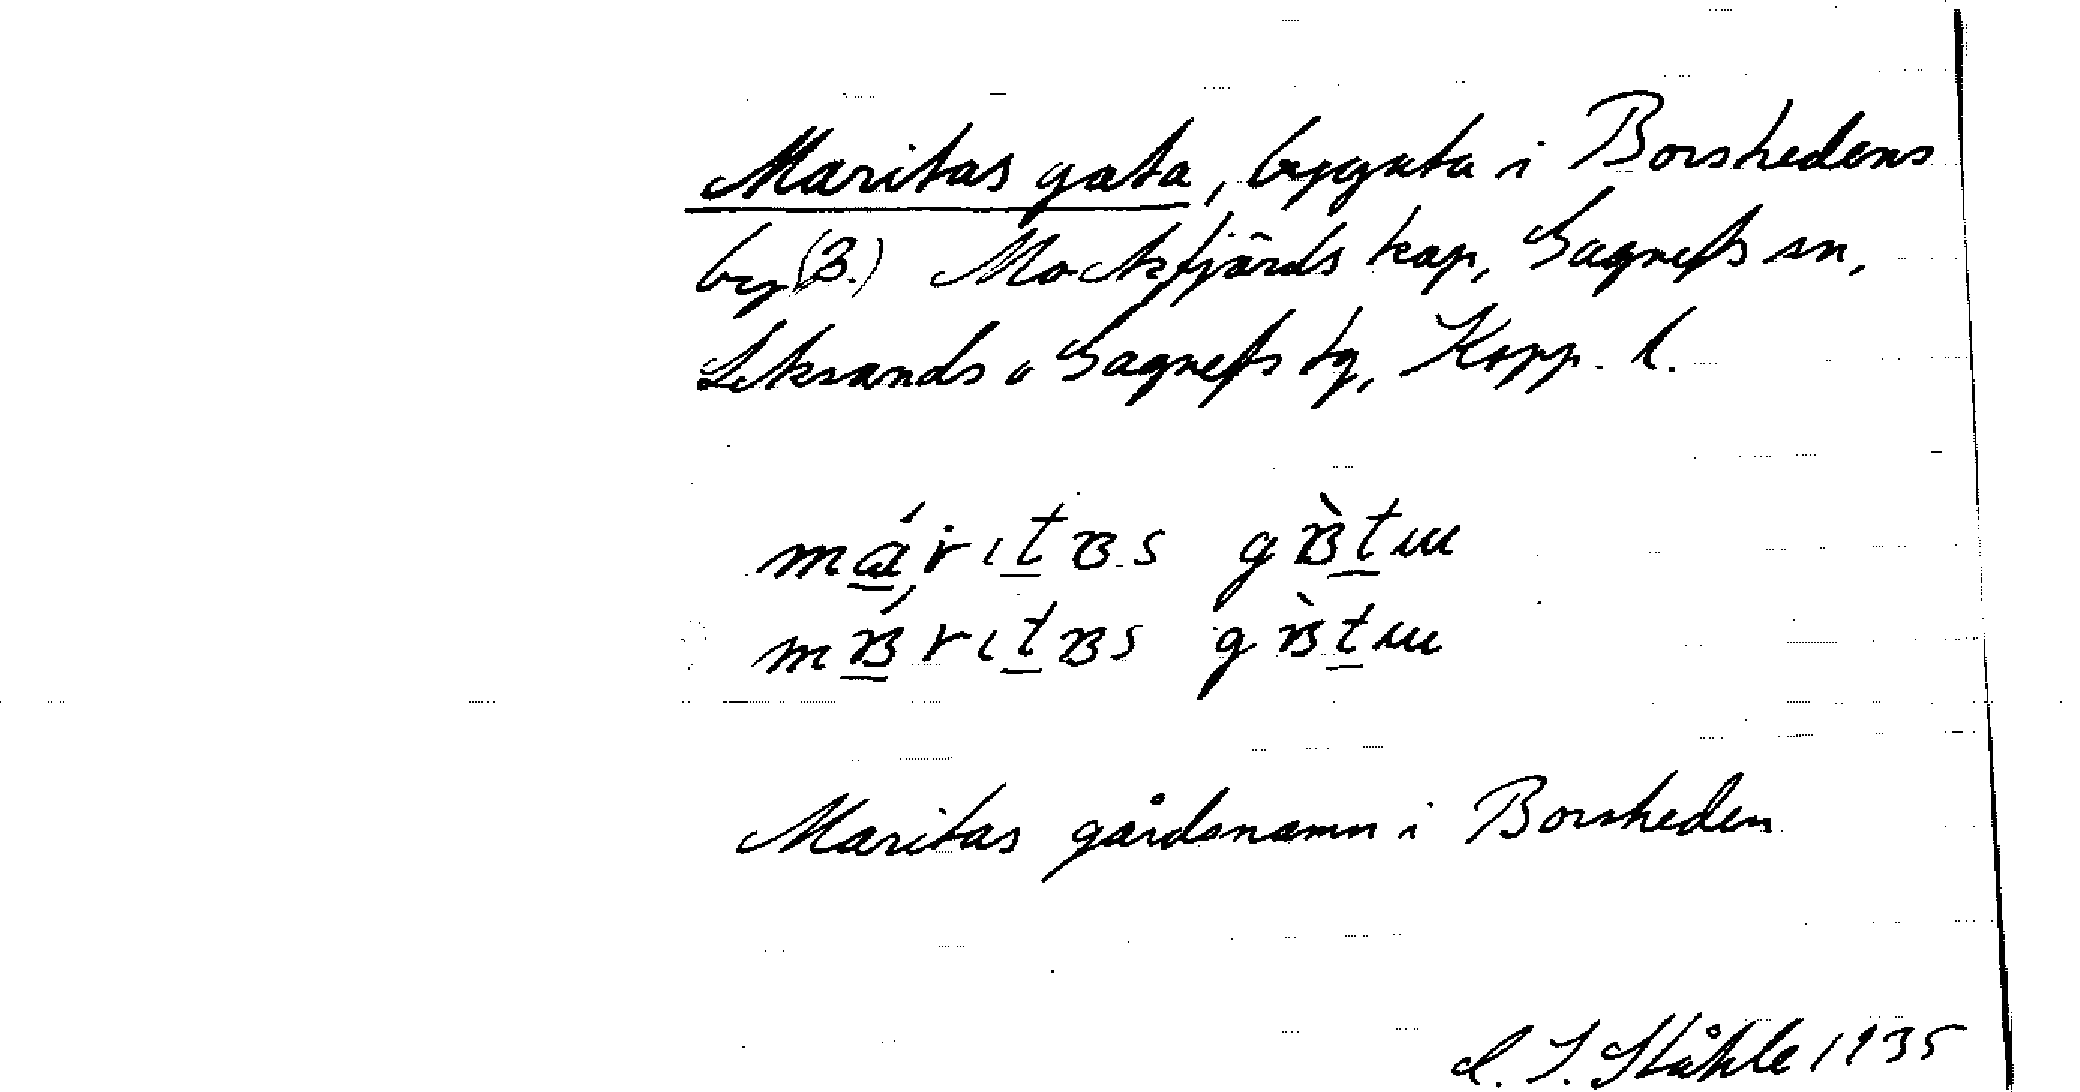 Maritas gata, bygata i Borshedens
by (B.) Mockfjärds kap, Gagnefs sn,
Leksands o Gagnefs tg, Kopp. l.
Maritas gårdsnamn i Borsheden
C. I. Ståhle 1935